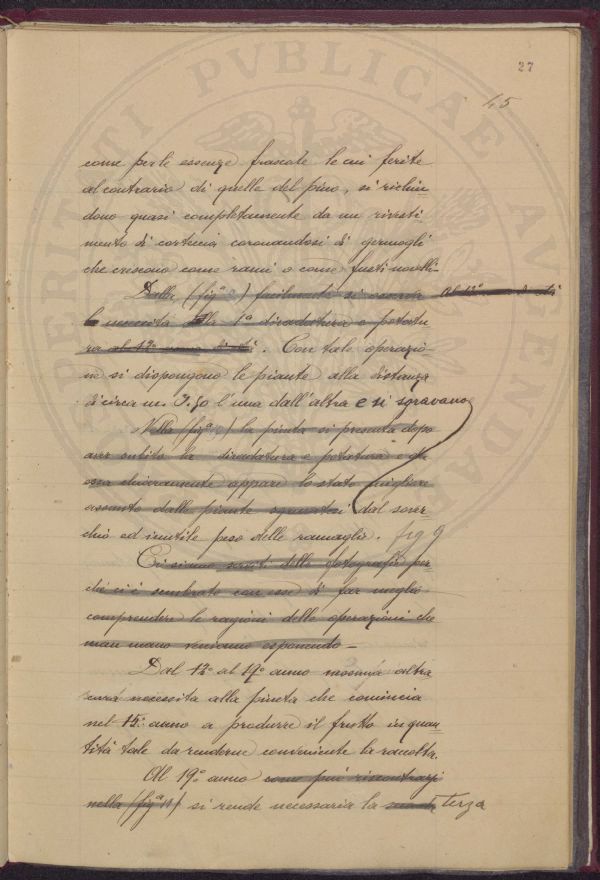 27
45
PERITATI PVBLICAE AVGENDAE
come per le essenze frascate le cui ferite
al contrario di quelle del pino, si richiu
dono quasi completamente da un rivesti
mento di corteccia coronandosi di germogli
che crescono come rami o come fusti novelli.
Dalla (figa ) facilmente si osserva al 12°
la necessità della 1a diradatura e potatu
ra al 12° anno di età. Con tale operazio
ne si dispongono le piante alla distanza
di circa m. 1.50 l'una dall'altra e si sgravano
Nella (figa ) la pineta si presenta dopo
aver subito la diradatura e potatura e da
essa chiaramente appare lo stato migliore
assunto dalle piante sgravatesi dal sover
chio ed inutile peso delle ramaglie. fig 9
Ci siamo serviti delle fotografie per
chè ci è sembrato con esse di far meglio
comprendere le ragioni delle operazioni che
man mano veniamo esponendo.
Dal 12° al 19° anno nessuna altra
cura necessita alla pineta che comincia
nel 15° anno a produrre il frutto in quan
tità tale da renderne conveniente la raccolta.
Al 19° anno come può riscontrarsi
nella (figa 11) si rende necessaria la terza